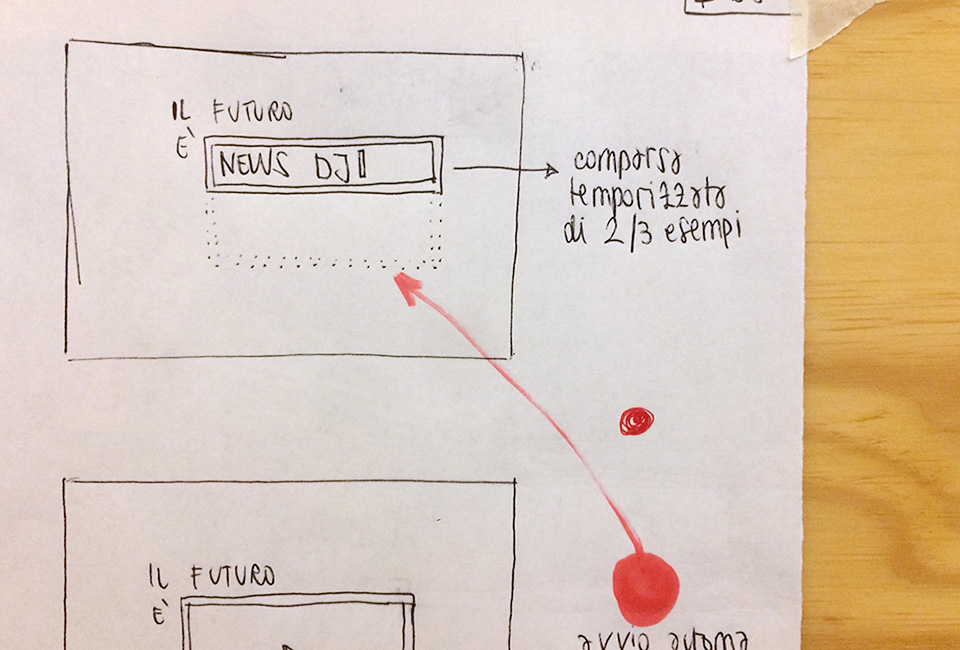 IL FUTURO
È
NEWS DJ
comparsa
temporizzata
di 2/3 esempi
IL FUTURO
È
avvio automa